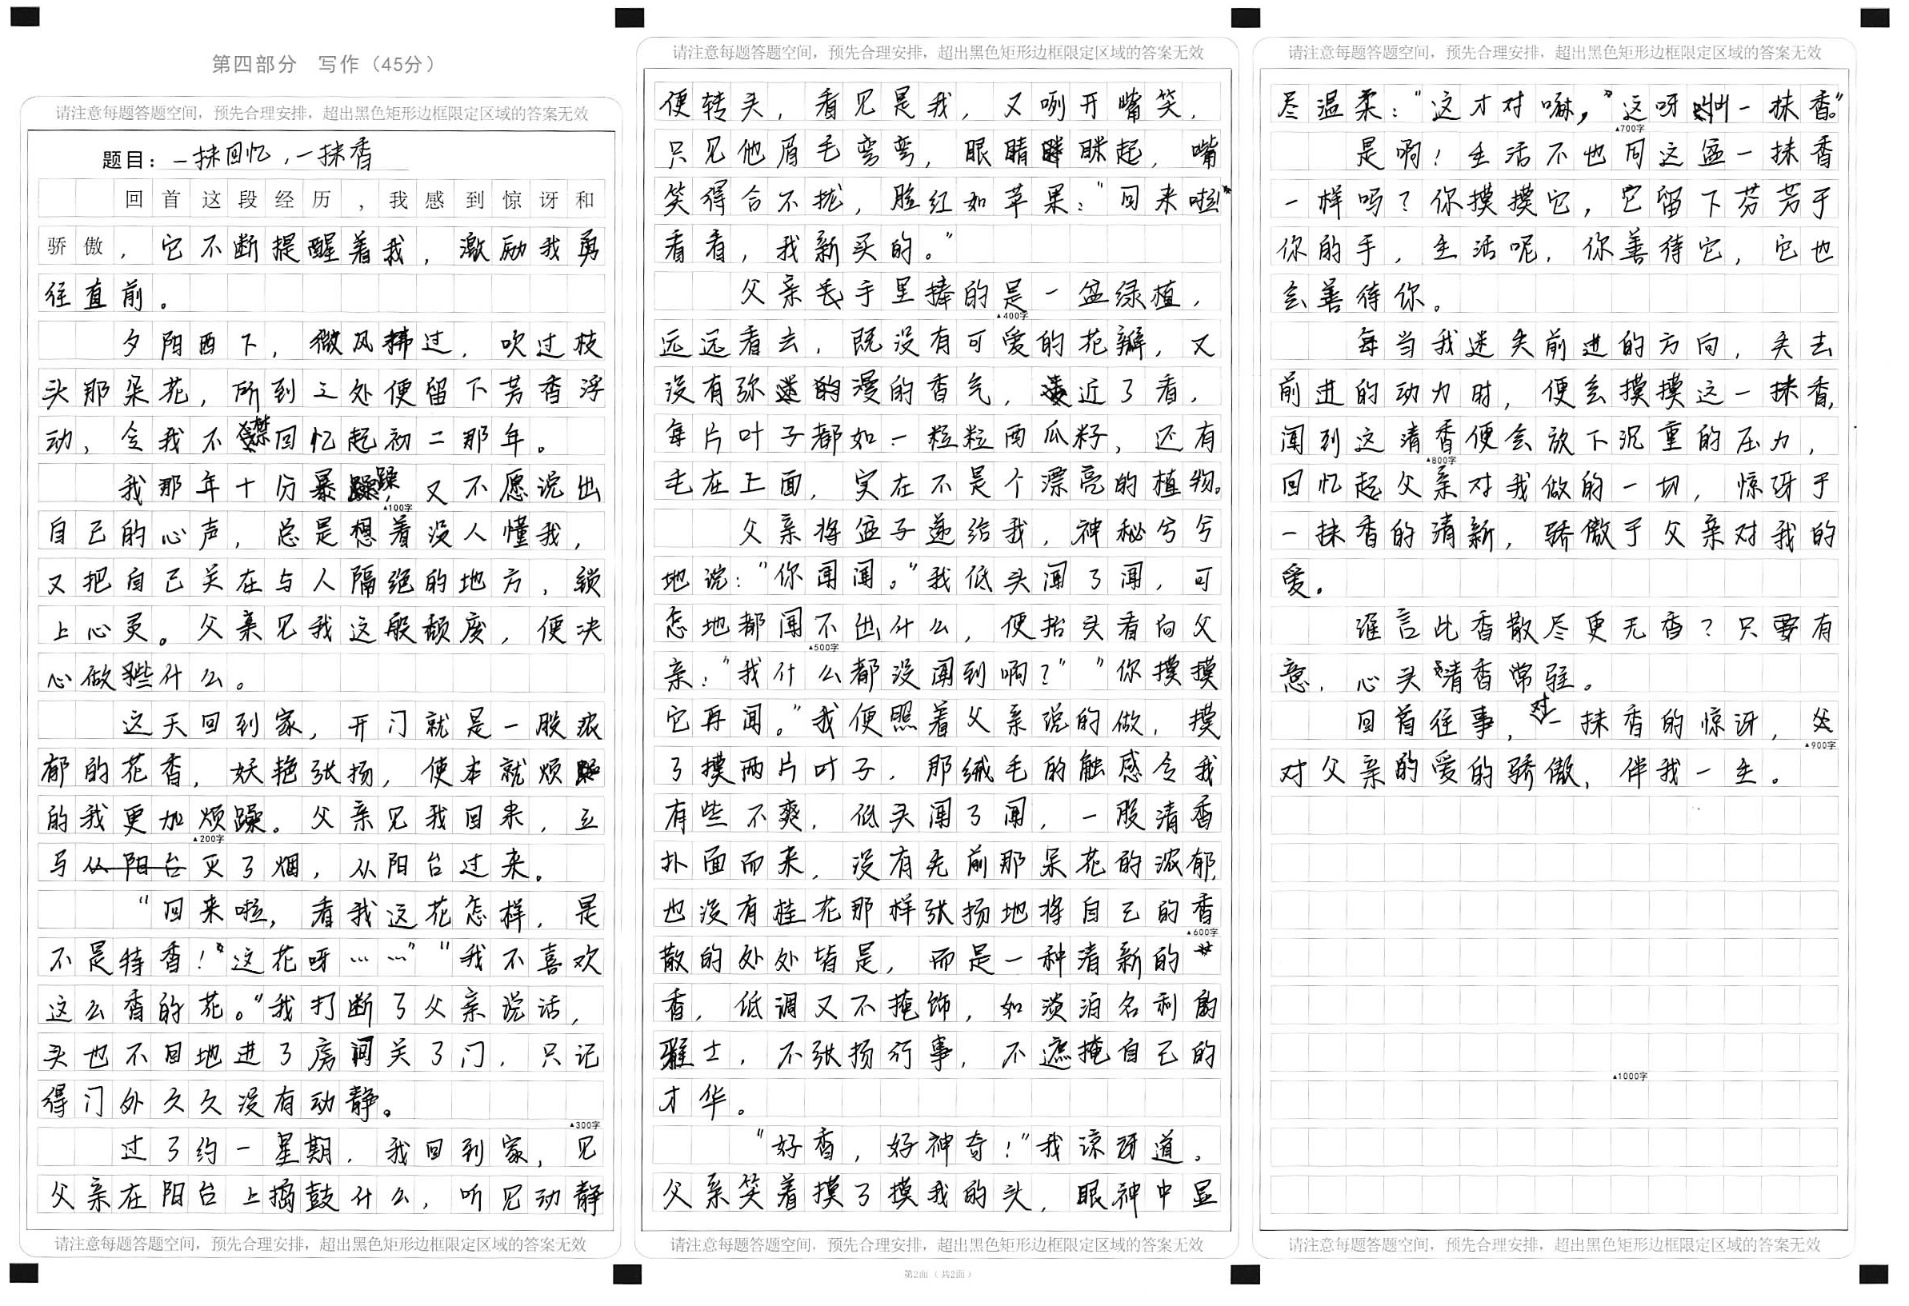 第四部分 写作（45分）
请注意每题答题空间，预先合理安排，超出黑色矩形边框限定区域的答案无效
题目：一抹回忆，一抹香
回首这段经历，我感到惊讶和
骄傲，它不断提醒着我，激励我勇
往直前。
夕阳西下，微风拂过，吹过枝
头那朵花，所到之处便留下芳香浮
动，令我不禁回忆起初二那年。
我那年十分暴躁，又不愿说出
▲100字
自己的心声，总是想着没人懂我，
又把自己关在与人隔绝的地方，锁
上心灵。父亲见我这般颓废，便决
心做些什么。
这天回到家，开门就是一股浓
郁的花香，妖艳张扬，使本就烦躁
的我更加烦躁。父亲见我回来，立
▲200字
马从阳台灭了烟，从阳台过来。
“回来啦，看我这花怎样，是
不是特香！”这花呀……”“我不喜欢
这么香的花。”我打断了父亲说话，
头也不回地进了房间关了门，只记
得门外久久没有动静。
▲300字
过了约一星期，我回到家，见
父亲在阳台上捣鼓什么，听见动静
请注意每题答题空间，预先合理安排，超出黑色矩形边框限定区域的答案无效
请注意每题答题空间，预先合理安排，超出黑色矩形边框限定区域的答案无效
便转头，看见是我，又咧开嘴笑，
只见他眉毛弯弯，眼睛眯起，嘴
笑得合不拢，脸红如苹果：“回来啦”
看看，我新买的。”
父亲手里捧的是一盆绿植，
▲400字
远远看去，既没有可爱的花瓣，又
没有弥漫的香气，凑近了看，
每片叶子都如一粒粒西瓜籽，还有
毛在上面，实在不是个漂亮的植物。
父亲将盆子递给我，神秘兮兮
地说：“你闻闻。”我低头闻了闻，可
怎地都闻不出什么，便抬头看向父
▲500字
亲：“我什么都没闻到啊？”“你摸摸
它再闻。”我便照着父亲说的做，摸
了摸两片叶子，那绒毛的触感令我
有些不爽，低头闻了闻，一股清香
扑面而来，没有先前那朵花的浓郁，
也没有桂花那样张扬地将自己的香
▲600字
散的处处皆是，而是一种清新的
香，低调又不掩饰，如淡泊名利的
雅士，不张扬行事，不遮掩自己的
才华。
“好香，好神奇！”我惊讶道。
父亲笑着摸了摸我的头，眼神中显
请注意每题答题空间，预先合理安排，超出黑色矩形边框限定区域的答案无效
第2面（共2面）
请注意每题答题空间，预先合理安排，超出黑色矩形边框限定区域的答案无效
尽温柔：“这才对嘛，”这呀叫一抹香。”
▲700字
是啊！生活不也同这盆一抹香
一样吗？你摸摸它，它留下芬芳于
你的手，生活呢，你善待它，它也
会善待你。
每当我迷失前进的方向，失去
前进的动力时，便去摸摸这一抹香，
闻到这清香便会放下沉重的压力，
▲800字
回忆起父亲对我做的一切，惊讶于
一抹香的清新，骄傲于父亲对我的
爱。
谁言此香散尽更无香？只要有
意，心头清香常驻。
回首往事，对一抹香的惊讶，
▲900字
对父亲的爱的骄傲，伴我一生。
▲1000字
请注意每题答题空间，预先合理安排，超出黑色矩形边框限定区域的答案无效